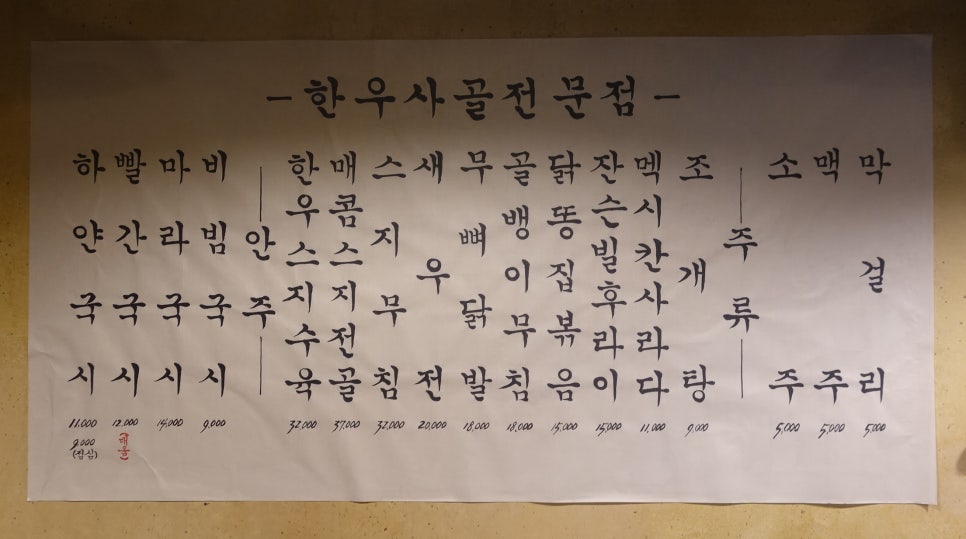 -한우사골전문점-
하얀국시
11,000
9,000
(점심)
빨간국시
12,000
(매움)
마라국시
14,000
비빔국시
9,000
안주
한우스지수육
32,000
매콤스지전골
37,000
스지무침
32,000
새우전
20,000
무뼈닭발
18,000
골뱅이무침
18,000
닭똥집볶음
15,000
잔슨빌후라이
15,000
멕시칸사라다
11,000
조개탕
9,000
주류
소주
5,000
맥주
5,000
막걸리
5,000